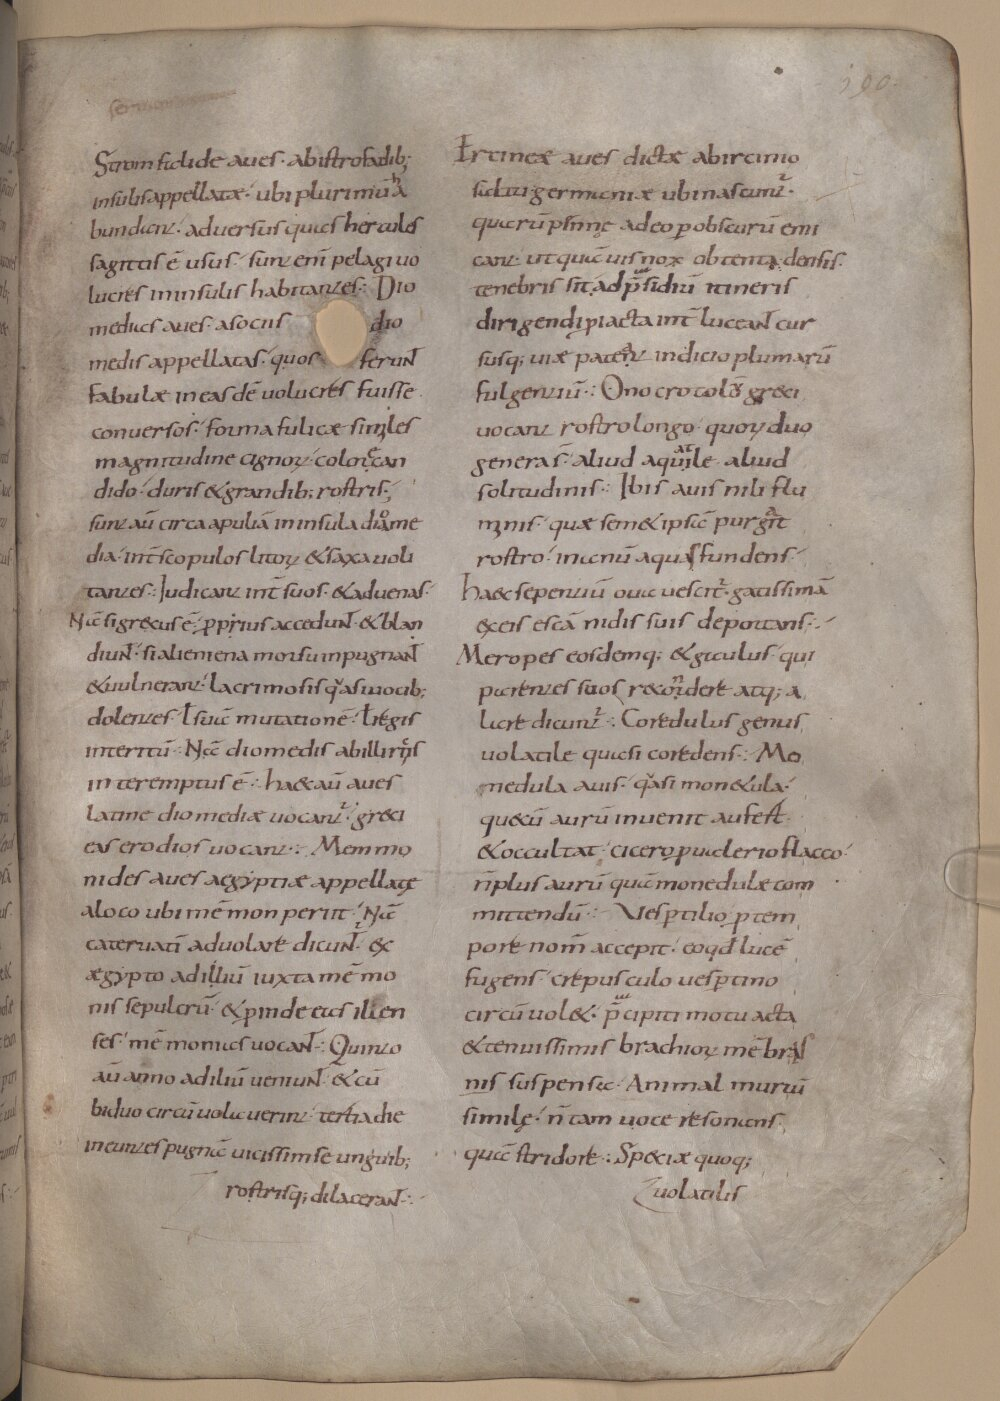 190.
Stromfulide aues · abistrofadib;
insulis appellatæ · ubi plurimū a
bundant · aduersus quas hercules
sagittis ē usus · sunt enī pelagi uo
lucres in insulis habitantes · Dio
medias aues · a sociis dio
medis appellatas · quos ferunt̄
fabulæ in eas dē uolucres fuisse
conuersos · forma fulicæ similes
magnitudine cignoꝝ · colore can
dido · duris & grandib; rostris ·
sunt aū circa apuliā in insula diome
dia · int̄ scopulos litoꝝ & saxa uoli
tantes · Iudicant int̄ suos · & aduenas ·
Nā si grecus ē · ꝓprius accedunt̄ · & blan
diunt̄ · si alieniena morsu inpugnant̄
& uulnerant · lacrimosis quasi uocib;
dolentes ł suā mutationē · ł regis
interitū · Nā diomedis ab illiriis
interemptus ē · haec aū aues
latine diomediæ uocant̄ · greci
eas erodios uocant · Memno
nides aues aegyptiæ appellatę
a loco ubi mēmon periit · Nā
cateruatī aduolare dicunt̄ · ex
ægypto ad illiū iuxta mēmo
nis sepulcrū · & ꝑinde eas ilien
ses · mēmonias uocant̄ · Quinto
aū anno ad iliū ueniunt̄ · & cū
biduo circūuolauerint · tertia die
ineuntes pugnā uicissim se unguib;
rostrisq; dilacerant̄ ·
Ircineæ aues dictæ ab ircinio
saltu germaniæ ubi nascunt̄ ·
quarū pinnę adeo ꝑ obscurū emi
cant · ut quāuis nox obtenta densis ·
tenebris sit · ad p̄sidiū itineris
dirigendi p̄iacta int̄luceant̄ cur
susq; uiæ pateat indicio plumarū
fulgentiū · Onocrotolos greci
uocant rostro longo · quoꝝ duo
genera s̄ · aliud aquatile · aliud
solitudinis · Ibis auis nili flu
minis · quæ sem&ipsā purgat
rostro · in anū aquas fundens ·
haec sepentiū oua uescit̄ · gatissimā
ex eis escā nidis suis deportans ·
Meropes eosdemq; & gaulus · qui
parentes suos recondere atq; a
lare dicunt̄ · Coredulus genus
uolatile quasi coredens · Mo
medula auis · quasi monetula ·
quæ cū aurū inuenit aufert
& occultat · cicero ꝓ ualerio flacco ·
n̄ plus aurū quā monedulæ com
mittendū · Vesꝑtilio ꝓ tem
pore nom̄ accepit · eo qđ lucē
fugens · crepusculo uesꝑtino
circūuol& · p̄cipiti motu acta
& tenuissimis brachioꝝ mēbra
nis suspensa · Animal muriū
similę · n̄ tam uoce resonans
quā stridore · Speciæ quoq;
uolatilis